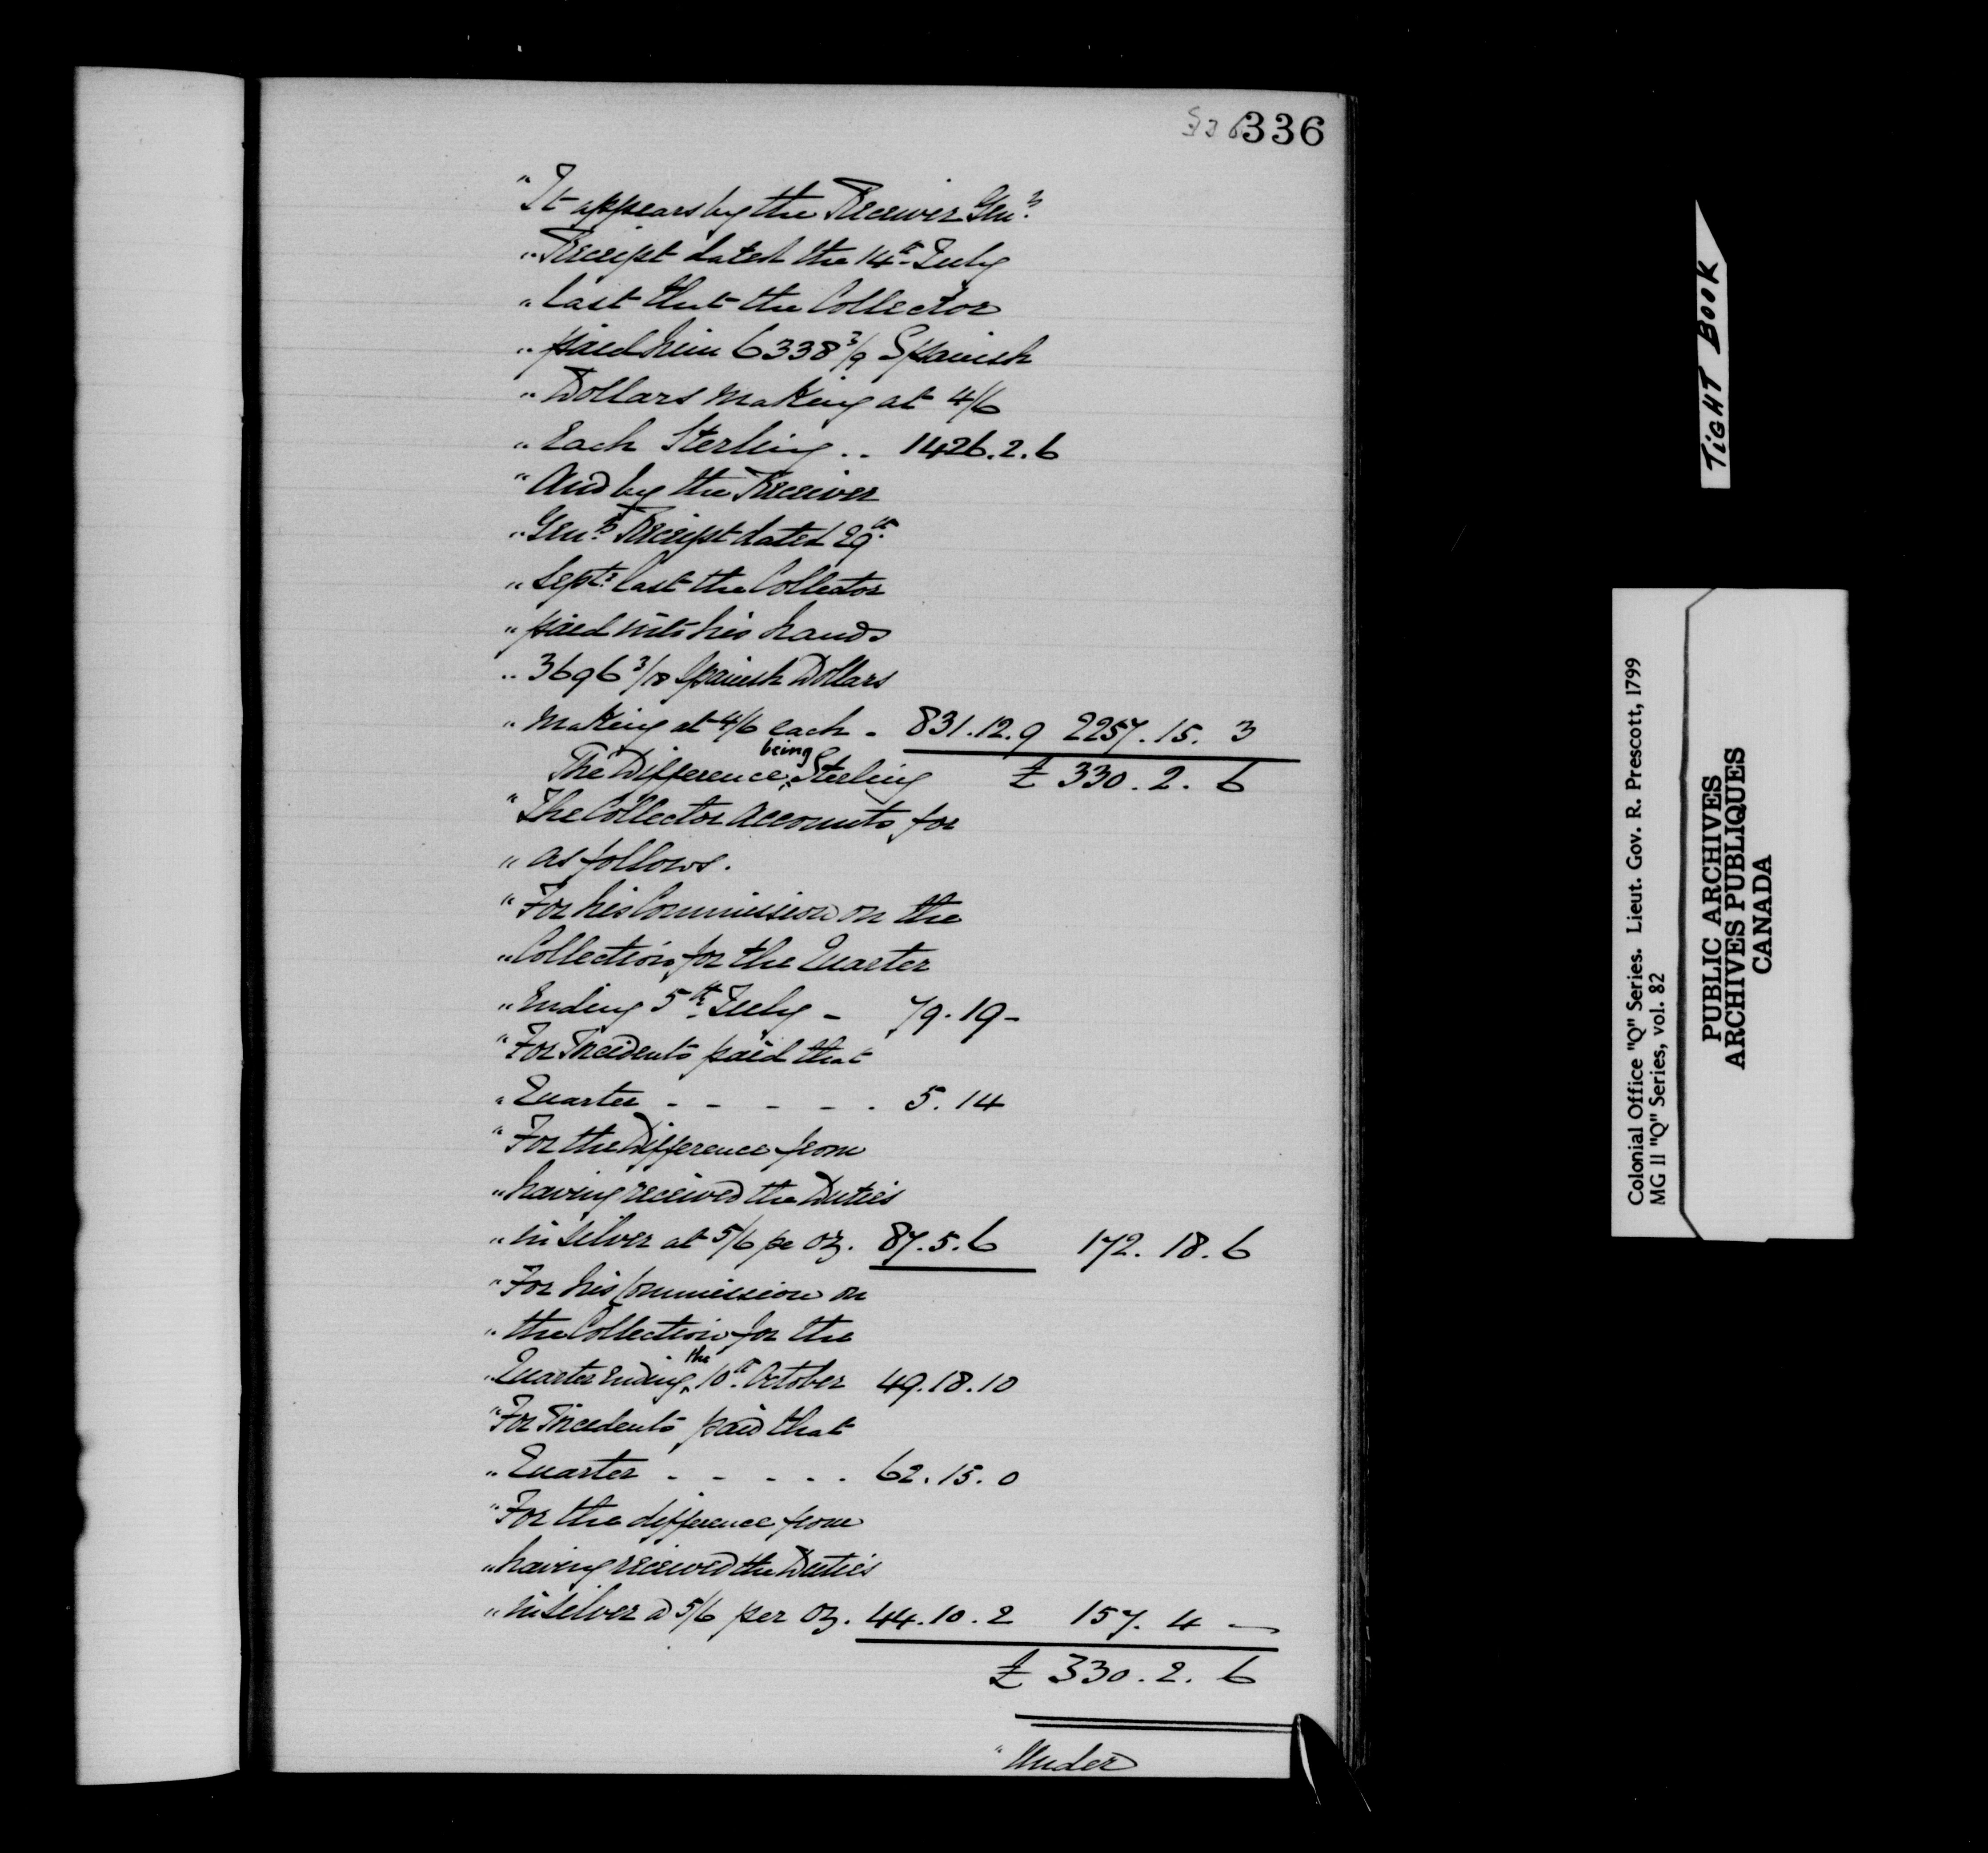 336 336
"It appears by the Receiver Gen.ˢ
"Receipt dated the 14th July
"last that the Collector
"paid him 6338 3/9 Spanish
"Dollars making at 4/6
"Each Sterling .. 1426.2.6
"And by the Receiver
"Gen.ˢ Receipt dated 29th
"Sept.r last the Collector
"paid into his hands
"3696 3/18 Spanish Dollars
"making at 4/6 each - 831.12.9 2257.15.3
being
The Difference ‸ Sterling £ 330.2.6
"The Collector accounts for
"as follows.
"For his Commission on the
"Collection for the Quarter
"Ending 5th July - 79.19-
"For Incidents paid that
"Quarter - - - - - 5.14
"For the Difference from
"having received the Duties
"in silver at 5/6 pe oz. 87.5.6 172.18.6
"For his Commission on
"the Collection for the
the
"Quarter Ending ‸ 10th October 49.18.10
"For Incedents paid that
"Quarter - - - - - 62.15.0
"For the difference from
"having received the Duties
"in silver a 5/6 per oz. 44.10.2 157.4 -
£ 330.2.6
"Under
TiGHT BOOK
Colonial Office "Q" Series. Lieut. Gov. R. Prescott, 1799
MG 11 "Q" Series, vol. 82
PUBLIC ARCHIVES
ARCHIVES PUBLIQUES
CANADA